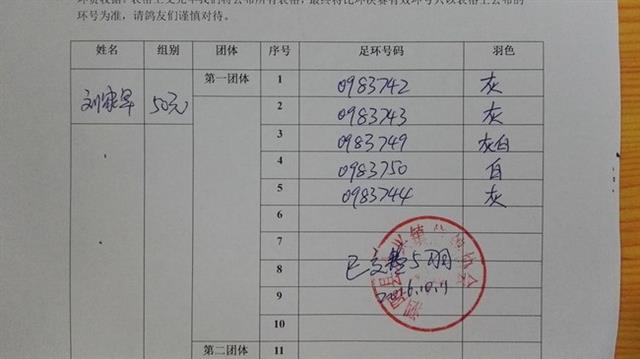 环号为准，请鸽友们谨慎对待。
姓名 组别 团体 序号 足环号码 羽色
50元 第一团体 1 0983742 灰
2 0983743 灰
3 0983749 灰白
4 0983750 白
5 0983744 灰
6
7
8 已交 5羽
9 2016.10.11
10
第二团体 11